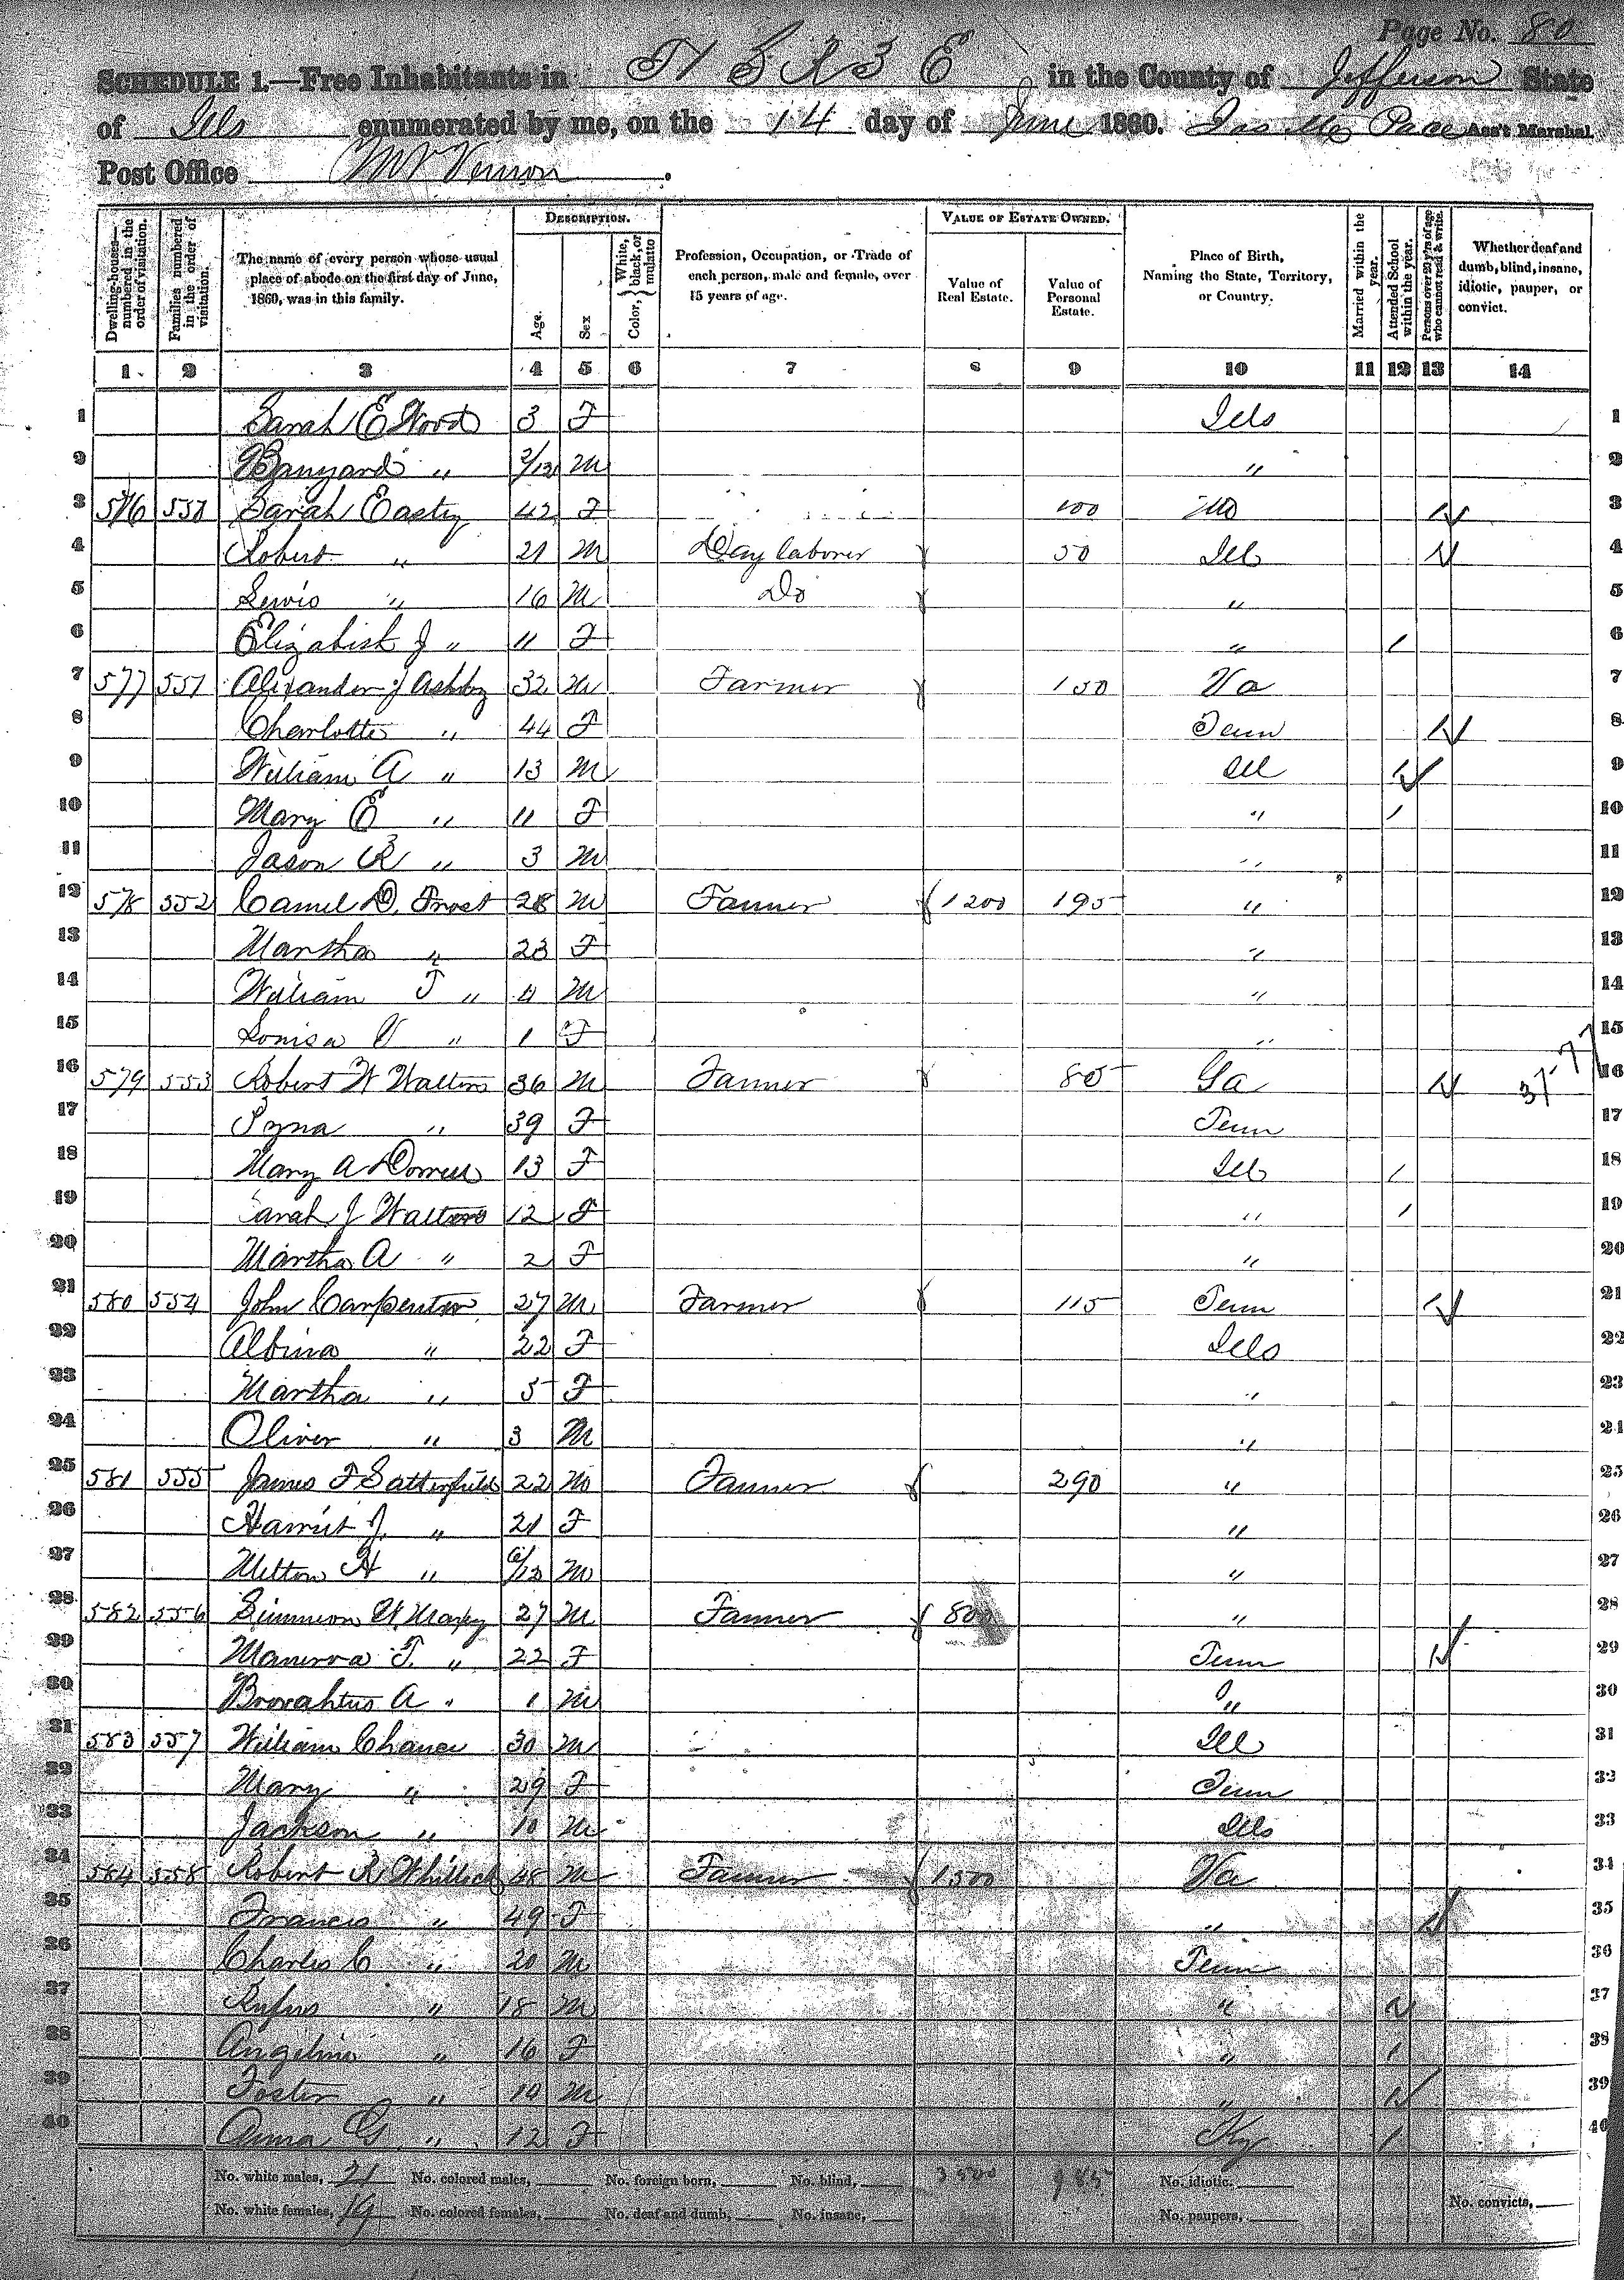 Page No. 80
SCHEDULE 1.—Free Inhabitants in T 3 R 3 E in the County of Jefferson State
of Ills enumerated by me, on the 14 day of June 1860. Jas Mc Pace Ass't Marshal.
Post Office Mt Vernon.
Dwelling-houses—numbered in the order of visitation.
Families numbered in the order of visitation.
The name of every person whose usual place of abode on the first day of June, 1860, was in this family.
DESCRIPTION.
Age.
Sex
Color, } White, black, or mulatto
Profession, Occupation, or Trade of each person, male and female, over 15 years of age.
VALUE OF ESTATE OWNED.
Value of Real Estate.
Value of Personal Estate.
Place of Birth, Naming the State, Territory, or Country.
Married within the year.
Attended School within the year.
Persons over 20 y'rs of age who cannot read & write.
Whether deaf and dumb, blind, insane, idiotic, pauper, or convict.
1 2 3 4 5 6 7 8 9 10 11 12 13 14
1 Sarah E Wood 3 F Ills 1
2 Banyard " 2/12 M " 2
3 576 550 Sarah Easty 42 F 100 Mo / 3
4 Robert " 21 M Day laborer 50 Ill / 4
5 Lewis " 16 M Do " 5
6 Elizabeth J " 11 F " / 6
7 577 551 Alexander J Ashby 32 M Farmer 150 Va 7
8 Charlotte " 44 F Tenn / 8
9 William A " 13 M Ill / 9
10 Mary E " 11 F " / 10
11 Jason R " 3 M " 11
12 578 552 Camel D. Frost 28 M Farmer 1200 195 " 12
13 Martha " 23 F " 13
14 William T " 4 M " 14
15 Louisa V " 1 F " 15
16 579 553 Robert W Walters 36 M Farmer 85 Ga / 16
37-77
17 " 39 F Tenn 17
18 Mary A 13 F Ill / 18
19 Sarah J Walters 12 F " / 19
20 Martha A " 2 F " 20
21 580 554 John Carpenter 27 M Farmer 115 Tenn / 21
22 Albina " 22 F Ills 22
23 Martha " 5 F " 23
24 Oliver " 3 M " 24
25 581 555 James F Satterfield 22 M Farmer 290 " 25
26 Harriet J. " 21 F " 26
27 Milton H " 6/12 M " 27
28 582 556 Simmeon W Maxey 27 M Farmer 800 " 28
29 Manerva T. " 22 F Tenn / 29
30 A " 1 M " 30
31 583 557 William Chance 30 M Ill 31
32 Mary " 29 F Tenn 32
33 Jackson " 10 M Ills 33
34 584 558 Robert R Whitlock 48 M Farmer 1500 Va 34
35 Francis " 49 F " / 35
36 Charles C " 20 M Tenn 36
37 Rufus " 18 M " / 37
38 Angeline " 16 F " / 38
39 Foster " 14 M " / 39
40 Anna G " 12 F Ky / 40
No. white males, 21 No. colored males, No. foreign born, No. blind, 3500 985 No. idiotic,
No. white females, 19 No. colored females, No. deaf and dumb, No. insane, No. paupers, No. convicts,